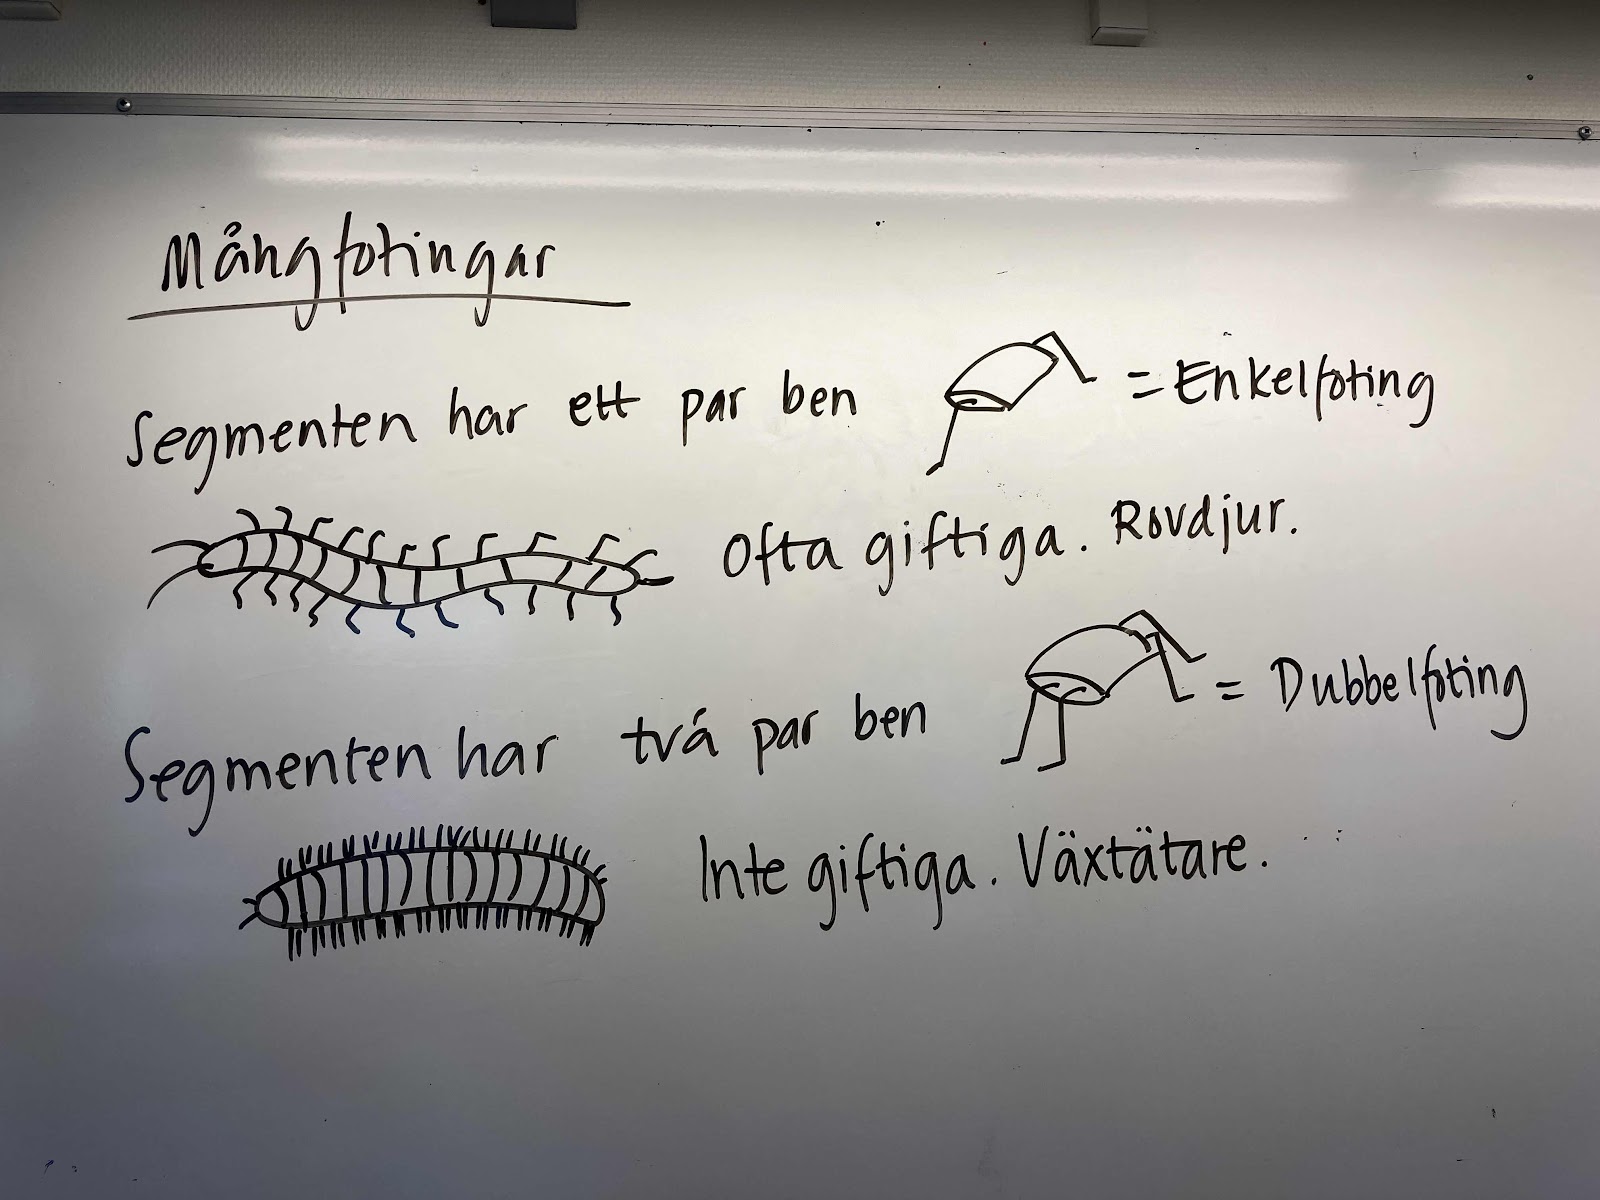 Mångfotingar
Segmenten har ett par ben = Enkelfoting
Ofta giftiga. Rovdjur.
Segmenten har två par ben = Dubbelfoting
Inte giftiga. Växtätare.